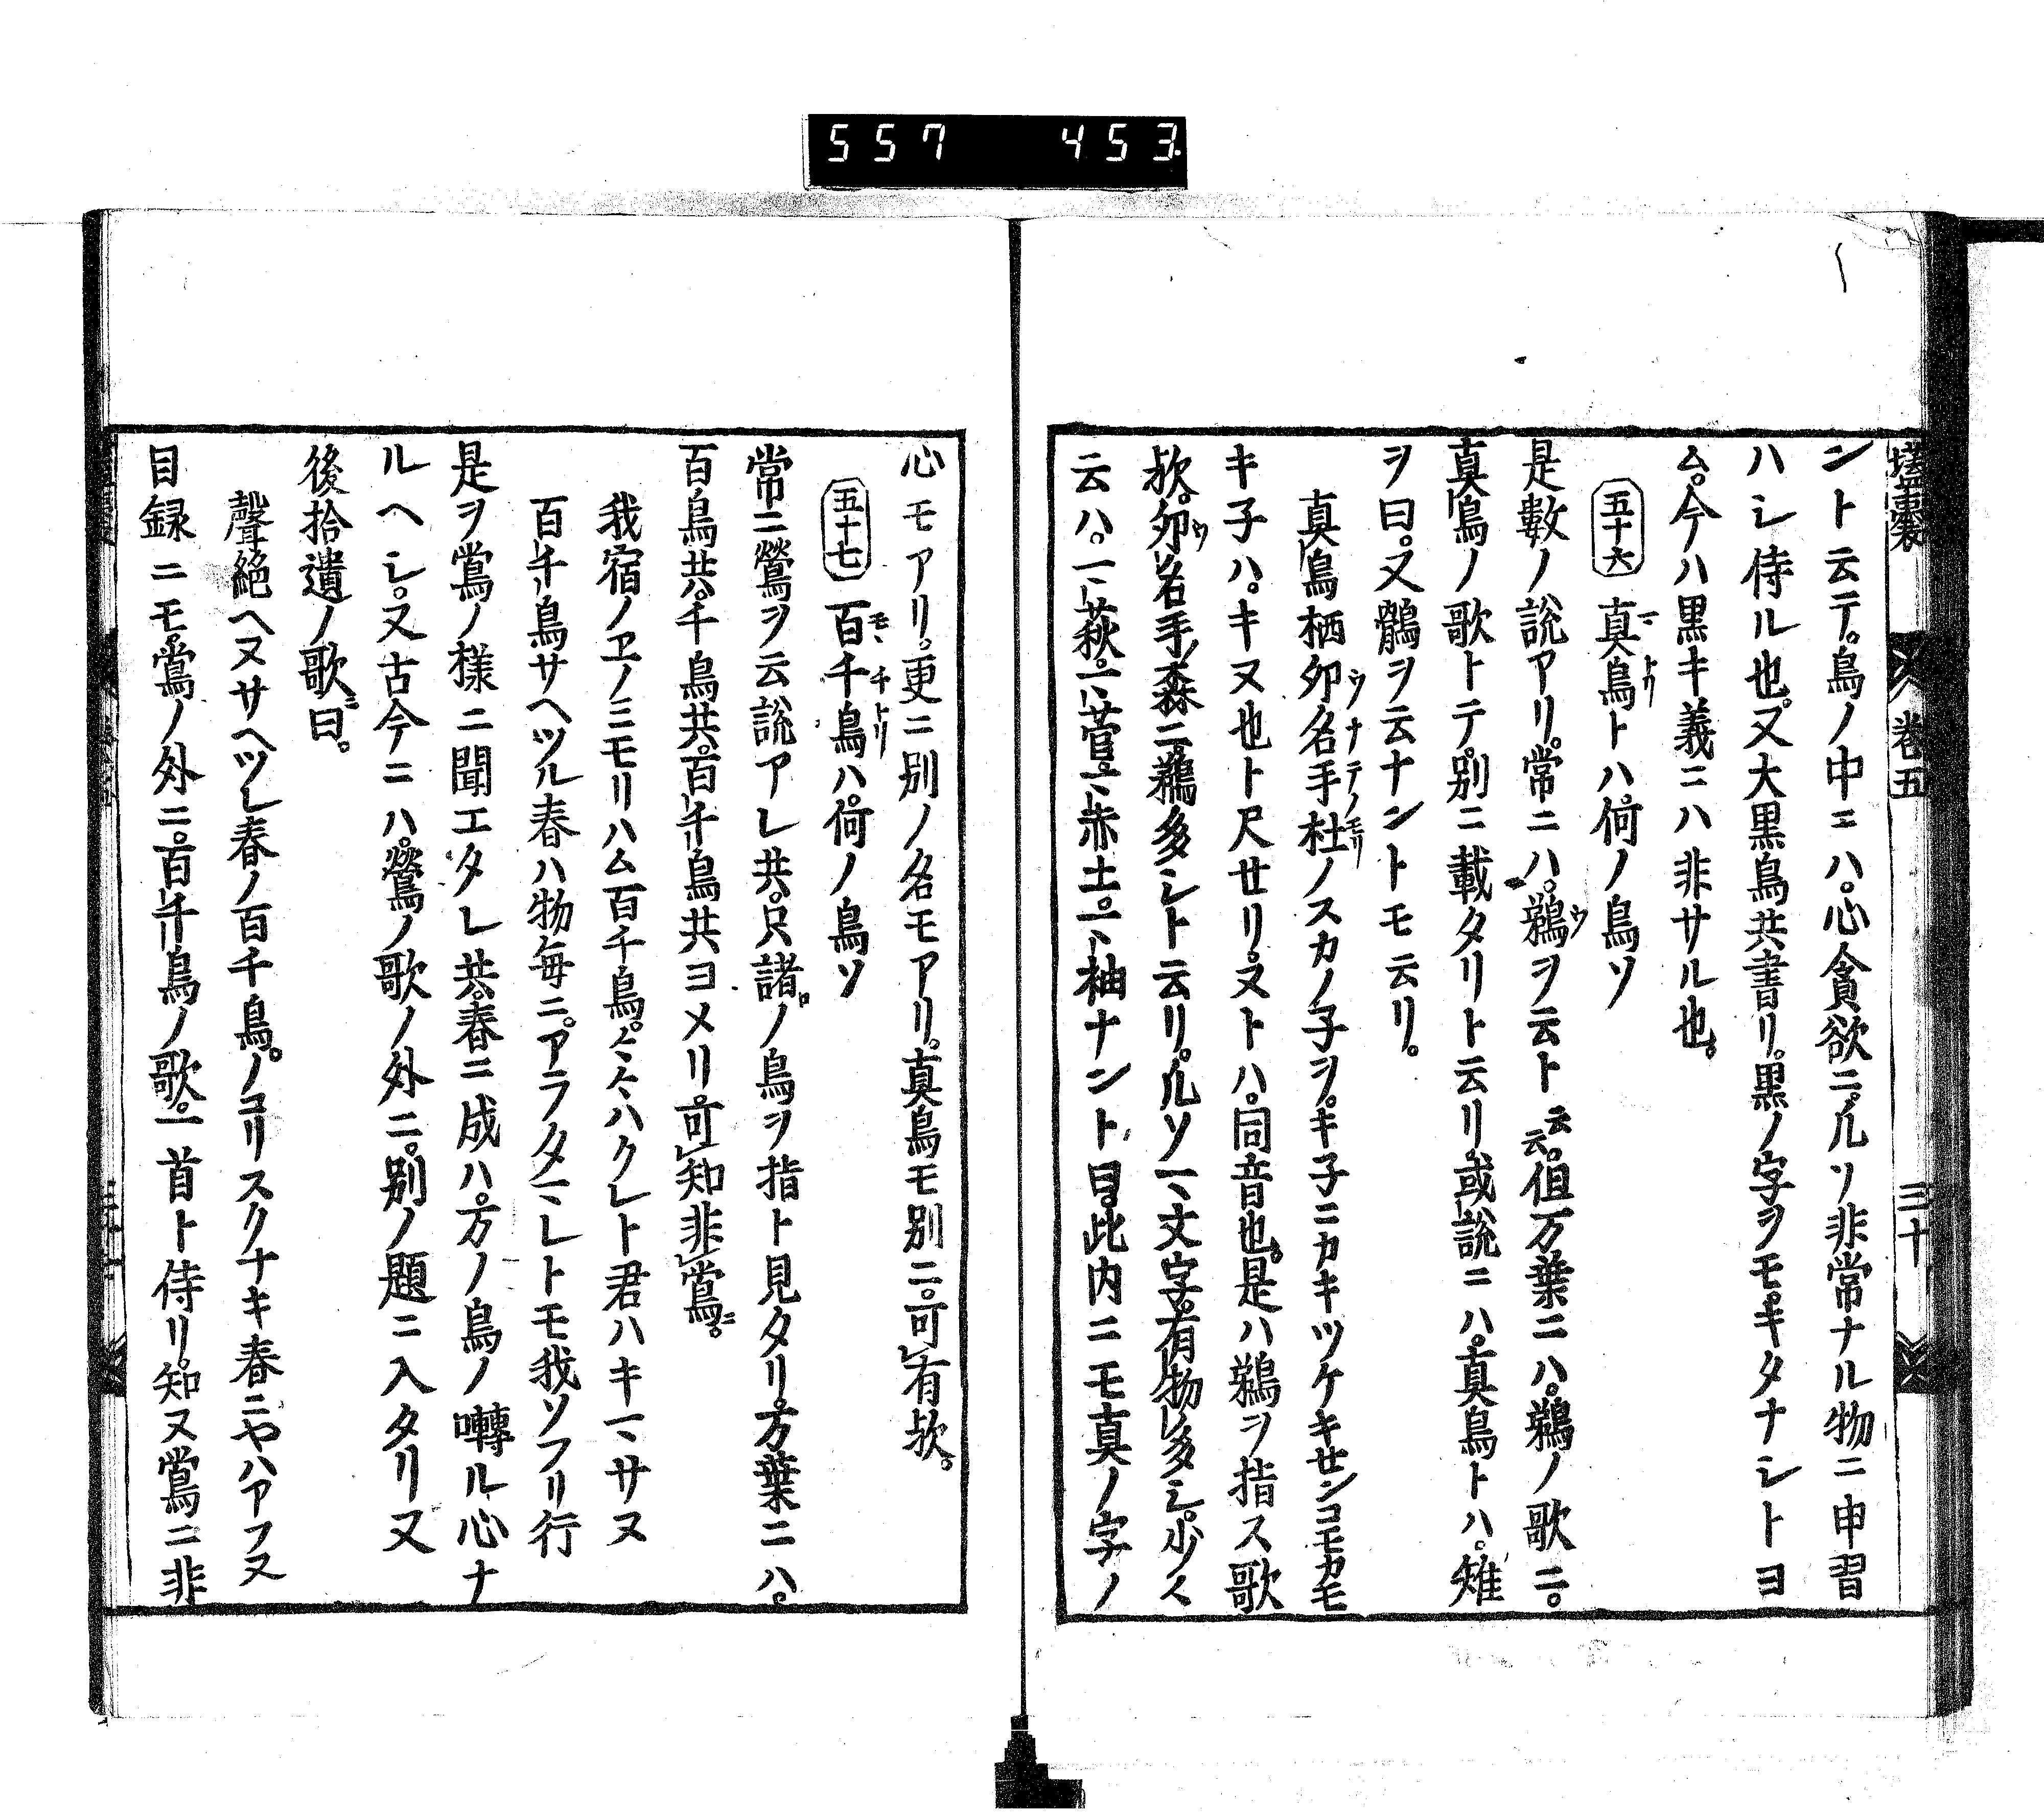 557 453.
壒囊 卷五 三十
ント云テ。鳥ノ中ニハ。心貪欲ニ。凡ソ非常ナル物ニ申習
ハシ侍ル也。又大黒鳥共書リ。黒ノ字ヲモ。キタナシトヨ
ム。今ハ黒キ義ニハ非サル也。
五十六 真鳥トハ。何ノ鳥ソ
是數ノ説アリ。常ニハ。鵜ヲ云ト云云。但万葉ニハ。鵜ノ歌ニ。
真鳥ノ歌トテ。別ニ載タリト云リ。或説ニハ。真鳥トハ。雉
ヲ曰。又鶻ヲ云ナントモ云リ。
真鳥栖卯名手杜ノスカノ子ヲ。キ子ニカキツケキせンコモカモ
キ子ハ。キヌ也ト尺せリ。ヌトハ。同音也。是ハ鵜ヲ指ス歌
歟。卯名手ノ森ニ鵜多シト云リ。凡ソ一ヽ文字。有物多シ。少々
云ハ。一ヽ萩。一ヽ菅。一ヽ赤土。一ヽ袖ナント曰。此内ニモ真ノ字ノ
心モアリ。更ニ別ノ名モアリ。真鳥モ別ニ。可有歟。
五十七 百千鳥ハ。何ノ鳥ソ
常ニ鶯ヲ云説アレ共。只諸ノ鳥ヲ指ト見タリ。万葉ニハ。
百鳥共。千鳥共。百千鳥共ヨメリ。可知非鴬。
我宿ノヱノミモリハム百千鳥。々々ハクレト君ハキマサヌ
百千鳥サヘツル春ハ物毎ニ。アラタマレトモ我ソフリ行
是ヲ鴬ノ様ニ聞エタレ共。春ニ成ハ。万ノ鳥ノ囀ル心ナ
ルヘシ。又古今ニハ。鶯ノ歌ノ外ニ。別ノ題ニ入タリ又
後拾遺ノ歌曰。
聲絶ヘヌサヘツレ春ノ百千鳥。ノコリスクナキ春ニヤハアフヌ
目録ニモ。鴬ノ外ニ。百千鳥ノ歌。一首ト侍リ。知ヌ鴬ニ非